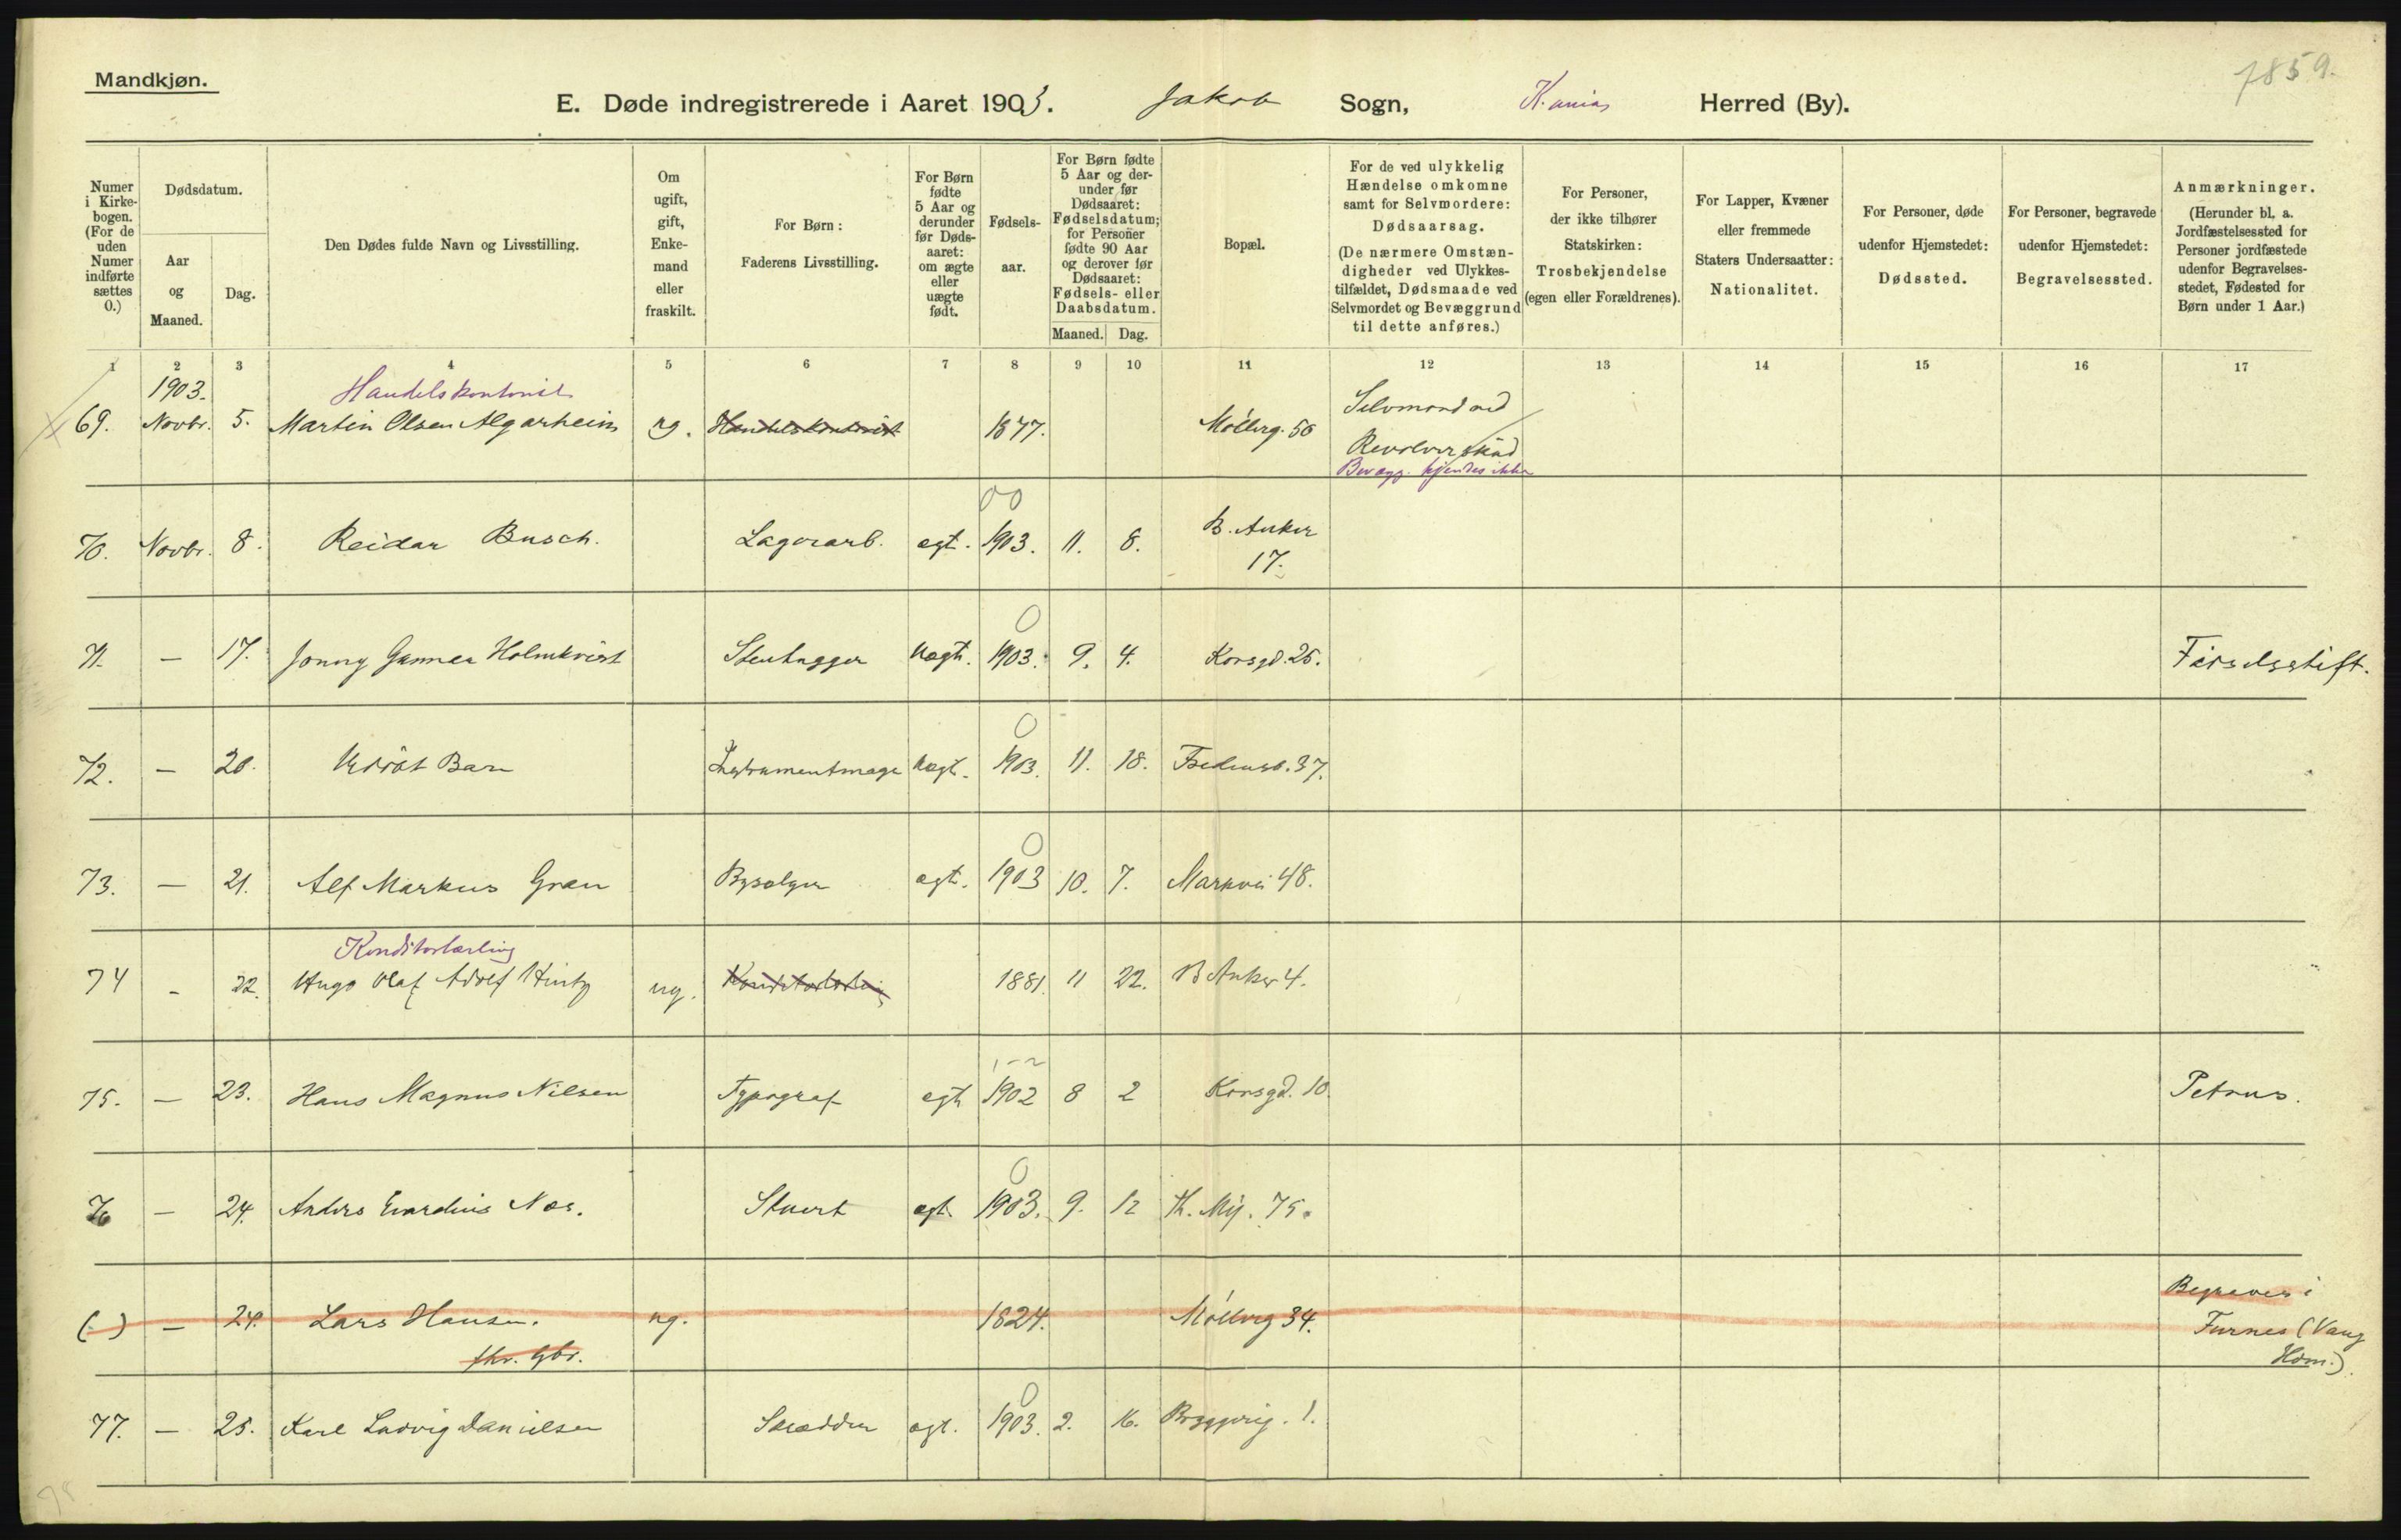 Mandkjøn.
7859.
E. Døde indregistrerede i Aaret 1903. Jakob Sogn, K.ania Herred (By).
Numer i Kirkebogen. (For de uden Numer indførte sættes 0.)
Dødsdatum.
Aar og Maaned.
Dag.
Den Dødes fulde Navn og Livsstilling.
Om ugift, gift, Enkemand eller fraskilt.
For Børn: Faderens Livsstilling.
For Børn fødte 5 Aar og derunder før Dødsaaret: om ægte eller uægte født.
Fødselsaar.
For Børn fødte 5 Aar og derunder før Dødsaaret: Fødselsdatum; for Personer fødte 90 Aar og derover før Dødsaaret: Fødsels- eller Daabsdatum.
Maaned. Dag.
Bopæl.
For de ved ulykkelig Hændelse omkomne samt for Selvmordere: Dødsaarsag. (De nærmere Omstændigheder ved Ulykkestilfældet, Dødsmaade ved Selvmordet og Bevæggrund til dette anføres.)
For Personer, der ikke tilhører Statskirken: Trosbekjendelse (egen eller Forældrenes).
For Lapper, Kvæner eller fremmede Staters Undersaatter: Nationalitet.
For Personer, døde udenfor Hjemstedet: Dødssted.
For Personer, begravede udenfor Hjemstedet: Begravelsessted.
Anmærkninger. (Herunder bl. a. Jordfæstelsessted for Personer jordfæstede udenfor Begravelsesstedet, Fødested for Børn under 1 Aar.)
1 2 3 4 5 6 7 8 9 10 11 12 13 14 15 16 17
1903. Handelskontorist
69. Novbr. 5. Martin Olsen Algarheim ug. Handelskontorist 1877. Møllerg. 50 Selvmord ved
Revolverskud
Bevægg. kjendes ikke
00
70. Novbr. 8. Reidar Busch. Lagerarb. ægt. 1903. 11. 8. B. Anker
17.
0
71. — 17. Jonny Gunnar Holmkvist Stenhugger Uægt. 1903. 9. 4. Korsgd. 25. Fødselsstift.
0
72. — 20. Udøbt Barn Instrumentmager Uægt. 1903. 11. 18. Fredensb. 37.
0
73. — 21. Alf Markus Gran Bysælger ægt. 1903 10. 7. Markvei 48.
Konditorlærling
74 - 22. Hugo Olaf Adolf Hintz ug. Konditorlærling 1881. 11 22. B Anker 4.
1-2
75. — 23. Hans Magnus Nilsen Typograf ægt 1902 8 2 Korsgd. 10. Petrus.
0
76 — 24. Anders Evardius Næs. Stuert ægt. 1903. 9. 12 Th. Mij. 75.
(-) — 24. Lars Hansen. ug. 1824. Møllerg 34. Begraves i
fhv. Gbr. Furnes (Vang
Hdm.)
0
77. — 25. Karl Ludvig Danielsen Skrædder ægt. 1903. 2. 16. Bryggerig. 1.
78